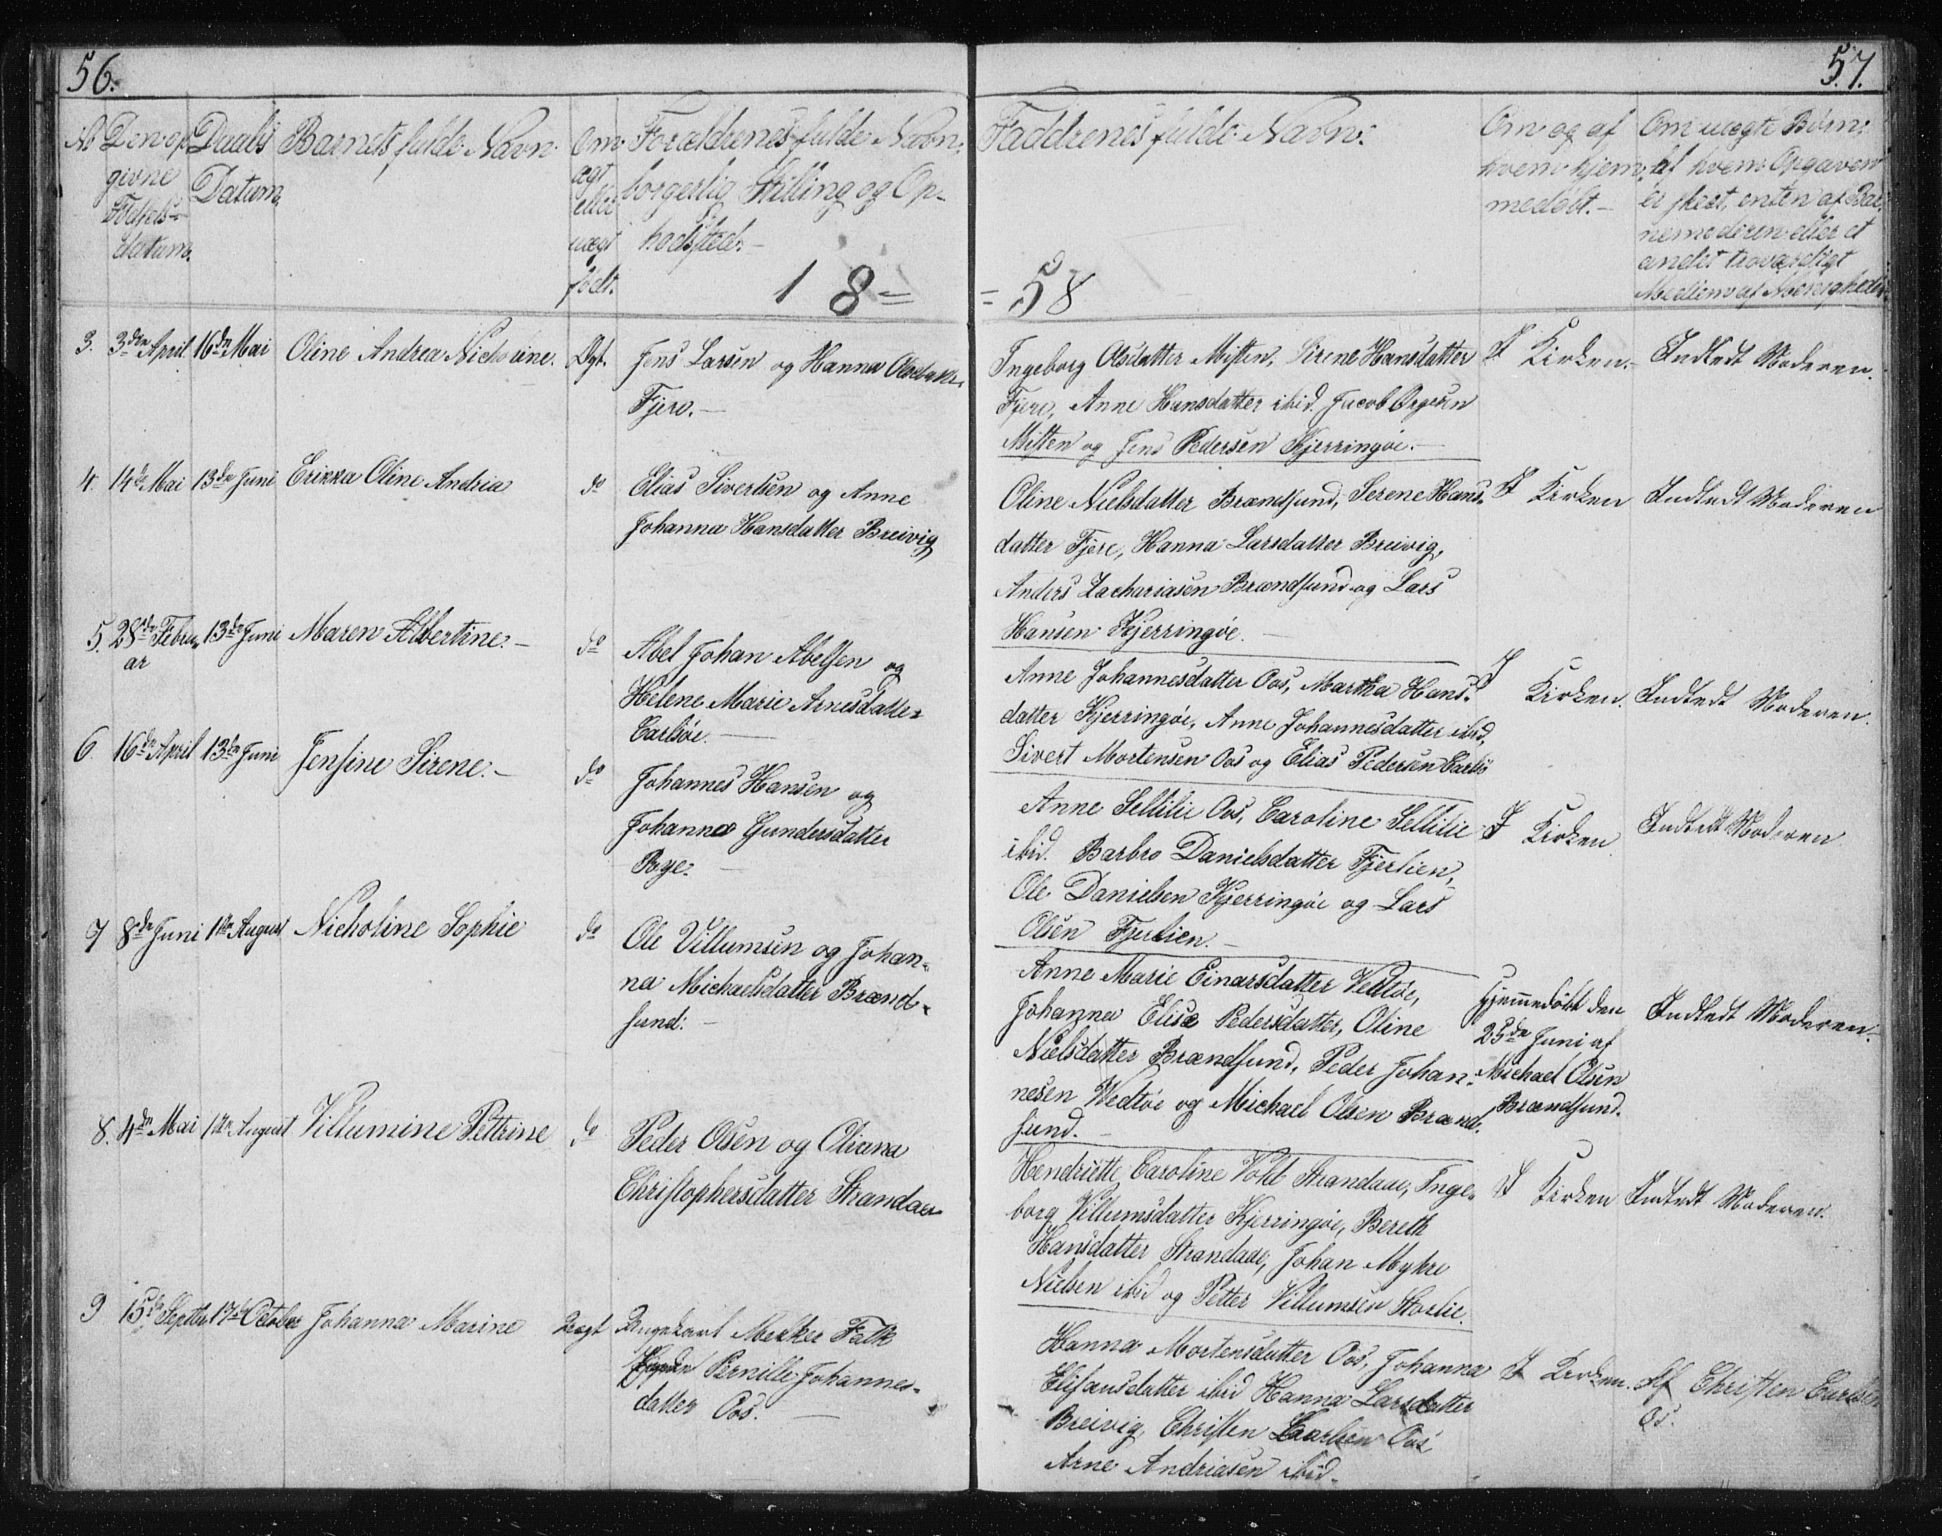 56.
57.
No
Den op
givne
Fødsels-
datum.
Daabs
Datum.
Barnets fulde Navn
Om
ægt
eller
uægt
født.
Forældrenes fulde Navn,
borgerlig Stilling og Op-
holdsted.-
18=
Faddrenes fulde Navn:
=58
Om og af
hvem hjem
medøbt.-
Om uægte Børn;
af hvem Opgaven
er skeet, enten af Bar-
nemoderen eller et
andet troværdigt
Medlem af Menigheden
3. 3den April 16de Mai Oline Andrea Nicholine. Ægt. Jens Larsen og Hanna Olsdatter
Fjere.-
Ingeborg Olsdatter Misten, Sirene Hansdatter
Fjere, Anne Hansdatter ibid. Jacob
Misten og Jens Pedersen Kjerringøe.-
I Kirken.- Indledt Moderen.
4. 14de Mai 13de Juni Erikka Oline Andria do Elias Sivertsen og Anne
Johanna Hansdatter Breivig
Oline Nielsdatter Brændsund, Serene Hans-
datter Fjere, Hanna Larsdatter Breivig,
Anders Zachariasen Brændsund og Lars
Hansen Kjerringøe.
I Kirken Indledt Moderen
5. 28de Febru
ar
13de Juni Maren Albertine.- do Abel Johan Abelsen og
Helene Marie Arnesdatter
Carlsøe.
Anne Johannesdatter Oos, Martha Hans-
datter Kjerringøe, Anne Johannesdatter ibid,
Sivert Mortensen Oos og Elias Pedersen Carlsø
I Kirken. Indledt Moderen.
6. 16de April 13de Juni Jensine Sirene.- do Johannes Hansen og
Johanna Gundersdatter
Rye.
Anne Sellilie Oos, Caroline Sellilie
ibid. Barbro Danielsdatter Fjerlien,
Ole Danielsen Kjerringøe og Lars
Olsen Fjerlien.-
I Kirken. Indledt Moderen
7 8de Juni 1ste August Nicholine Sophie do Ole Villumsen og Johan-
na Michaelsdatter Brænd-
sund.-
Anne Marie Einarsdatter Vedtøe,
Johanna Elise Pedersdatter, Oline
Nielsdatter Brændsund, Peder Johan-
nesen Wedtøe og Michael Olsen Brænd-
sund.-
Hjemmedøbt den
25de Juni af
Michael Olsen
Brændsund.
Indledt Moderen.
8. 4de Mai 1ste August Villumine Pettrine do Peder Olsen og Oliana
Christophersdatter Strandaae
Hendriette Caroline Vold Strandaae, Inge-
borg Villumsdatter Kjerringøe, Bereth
Hansdatter Strandaae, Johan Mykre
Nielsen ibid og Petter Villumsen Storlie.
I Kirken Indledt Moderen.
9 15de Septbr 17de October Johanna Marine Uægt Ungekarl Merker Falk
Pernille Johannes-
datter Oos.
Hanna Mortensdatter Oos, Johanna
Elifausdatter ibid Hanna Larsdatter
Breivig, Christen Carlsen Oos
Arne Andriasen ibid.
I Kirken. Af Christen Carlsen
Os.